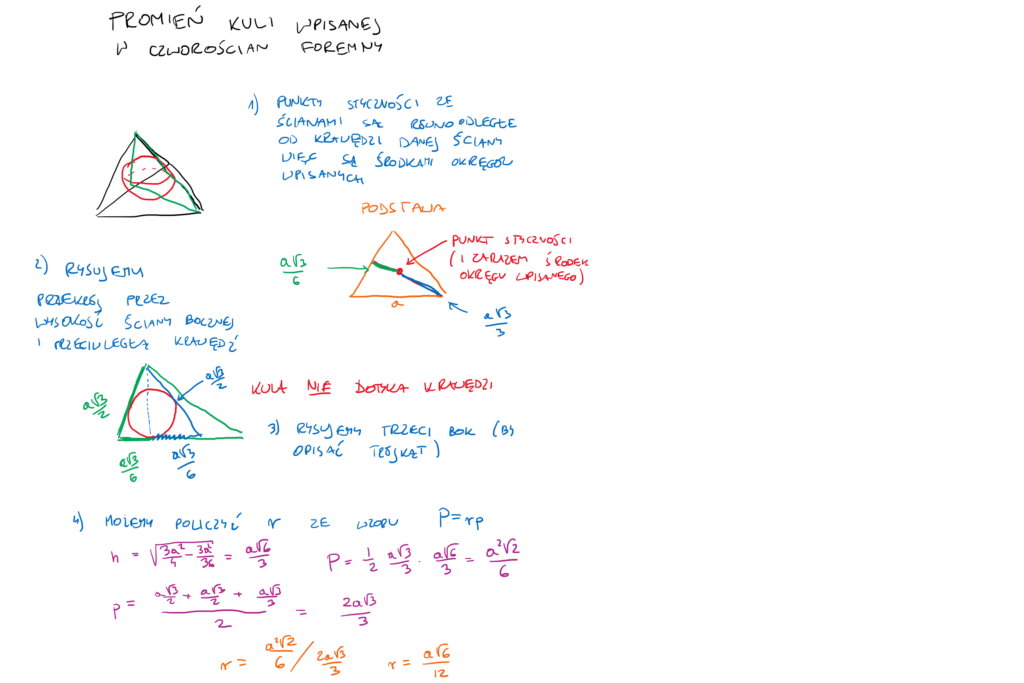 PROMIEŃ KULI WPISANEJ
W CZWOROŚCIAN FOREMNY
1) PUNKTY STYCZNOŚCI ZE
ŚCIANAMI SĄ RÓWNOODLEGŁE
OD KRAWĘDZI DANEJ ŚCIANY
WIĘC SĄ ŚRODKAMI OKRĘGÓW
WPISANYCH
PODSTAWA
a√3/6
PUNKT STYCZNOŚCI
(I ZARAZEM ŚRODEK
OKRĘGU WPISANEGO)
a
a√3/3
2) RYSUJEMY
PRZEKRÓJ PRZEZ
WYSOKOŚĆ ŚCIANY BOCZNEJ
I PRZECIWLEGŁĄ KRAWĘDŹ
a√3/2
a√3/2
a√3/6
a√3/6
KULA NIE DOTYKA KRAWĘDZI
3) RYSUJEMY TRZECI BOK (BY
OPISAĆ TRÓJKĄT)
4) MOŻEMY POLICZYĆ r ZE WZORU P=rp
h = √(3a²/4 - 3a²/36) = a√6/3
P = 1/2 a√3/3 · a√6/3 = a²√2/6
p = (a√3/2 + a√3/2 + a√3/3)/2 = 2a√3/3
r = a²√2/6 / 2a√3/3 r = a√6/12